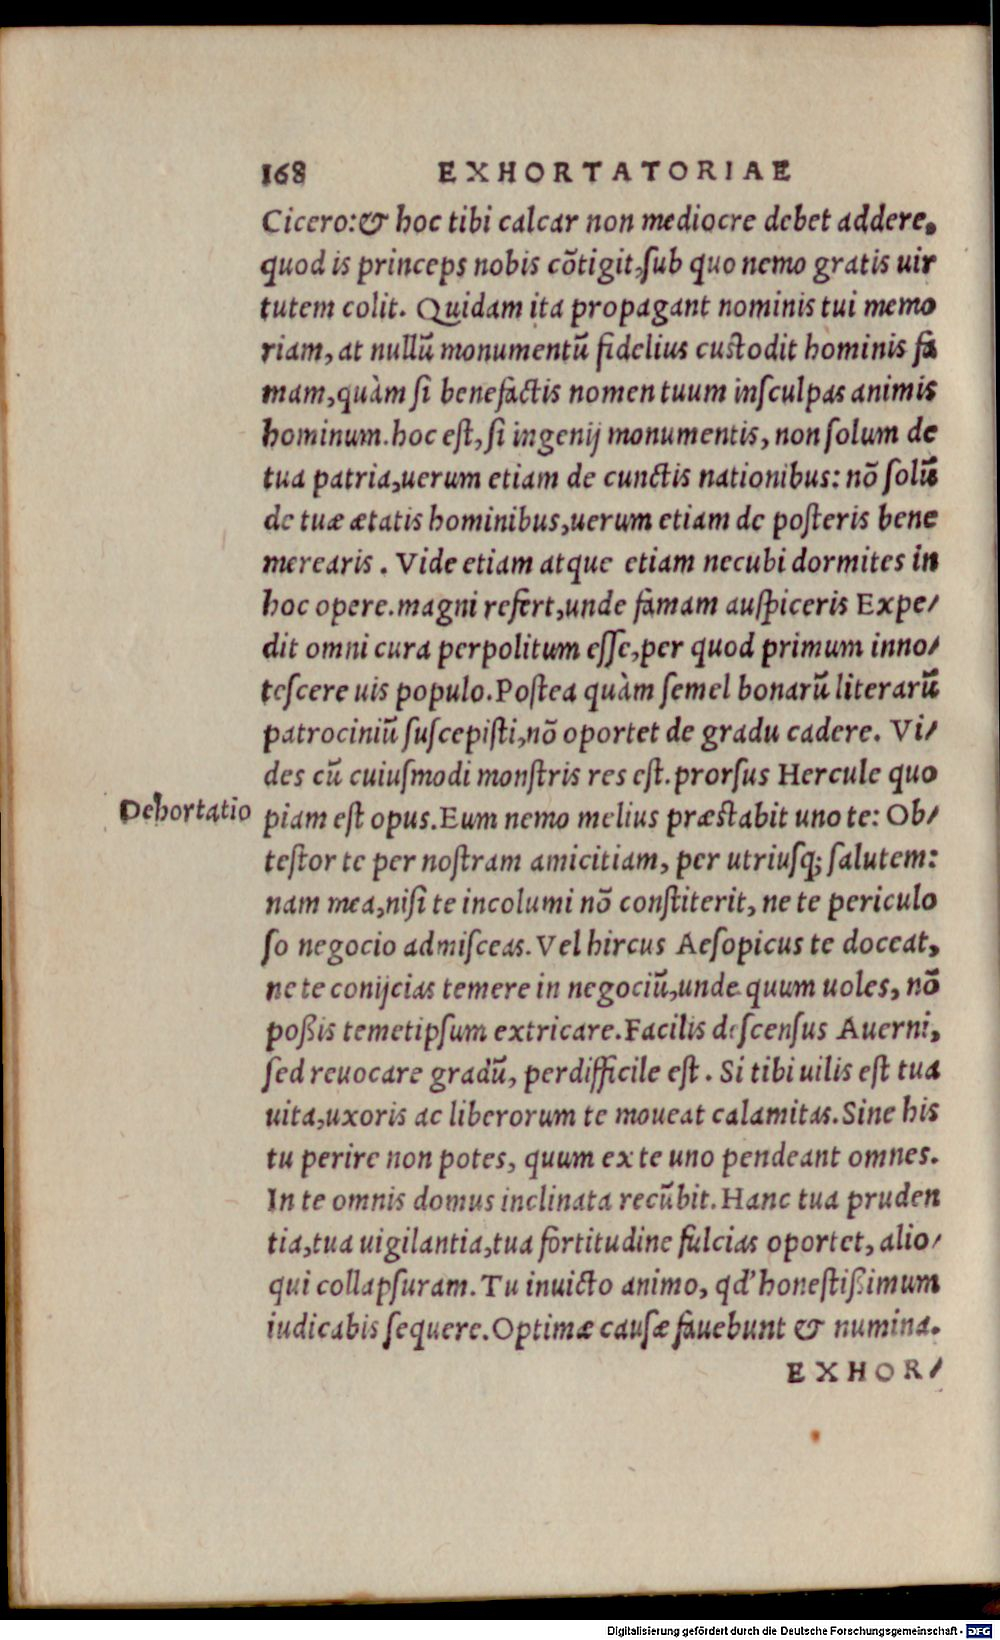 168 EXHORTATORIAE
Cicero:& hoc tibi calcar non mediocre debet addere.
quod is princeps nobis cõtigit,ſub quo nemo gratis uir
tutem colit. Quidam ita propagant nominis tui memo
riam, at nullũ monumentũ fidelius custodit hominis fa
mam,quàm ſi benefactis nomen tuum inſculpas animis
hominum.hoc eſt, ſi ingenij monumentis, non ſolum de
tua patria,uerum etiam de cunctis nationibus: nõ ſolũ
de tuæ ætatis hominibus,uerum etiam de poſteris bene
merearis . Vide etiam atque etiam necubi dormites in
hoc opere.magni refert,unde famam auſpiceris Expe/
dit omni cura perpolitum eſſe,per quod primum inno/
teſcere uis populo.Poſtea quàm ſemel bonarũ literarũ
patrociniũ ſuſcepiſti,nõ oportet de gradu cadere. Vi/
des cũ cuiuſmodi monſtris res eſt. prorſus Hercule quo
Dehortatio
piam eſt opus.Eum nemo melius præstabit uno te: Ob/
teſtor te per nostram amicitiam, per utriuſq; ſalutem:
nam mea,niſi te incolumi nõ conſtiterit, ne te periculo
ſo negocio admiſceas. Vel hircus Aeſopicus te doceat,
ne te conijcias temere in negociũ,unde quum uoles, nõ
poßis temetipſum extricare.Facilis deſcenſus Auerni,
ſed reuocare gradũ, perdifficile eſt . Si tibi uilis eſt tua
uita,uxoris ac liberorum te moueat calamitas.Sine his
tu perire non potes, quum ex te uno pendeant omnes.
In te omnis domus inclinata recũbit. Hanc tua pruden
tia,tua uigilantia,tua fortitudine fulcias oportet, alio/
qui collapſuram. Tu inuicto animo, qd' honeſtißimum
iudicabis ſequere.Optimæ cauſæ fauebunt & numina.
EXHOR/
Digitalisierung gefördert durch die Deutsche Forschungsgemeinschaft - DFG